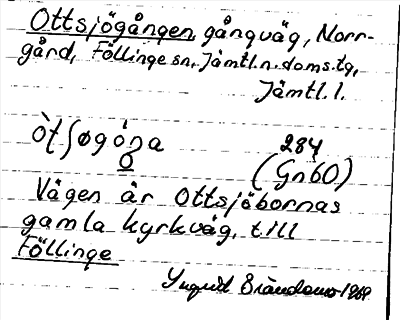 Ottsjögången, gångväg, Norr-
gård, Föllinge sn, Jämtl.n.doms.tg,
Jämtl.l.
òtʃøgóŋa
284
(Gn60)
Vägen är Ottsjöbornas
gamla kyrkväg, till
Föllinge
Ingrid 1969